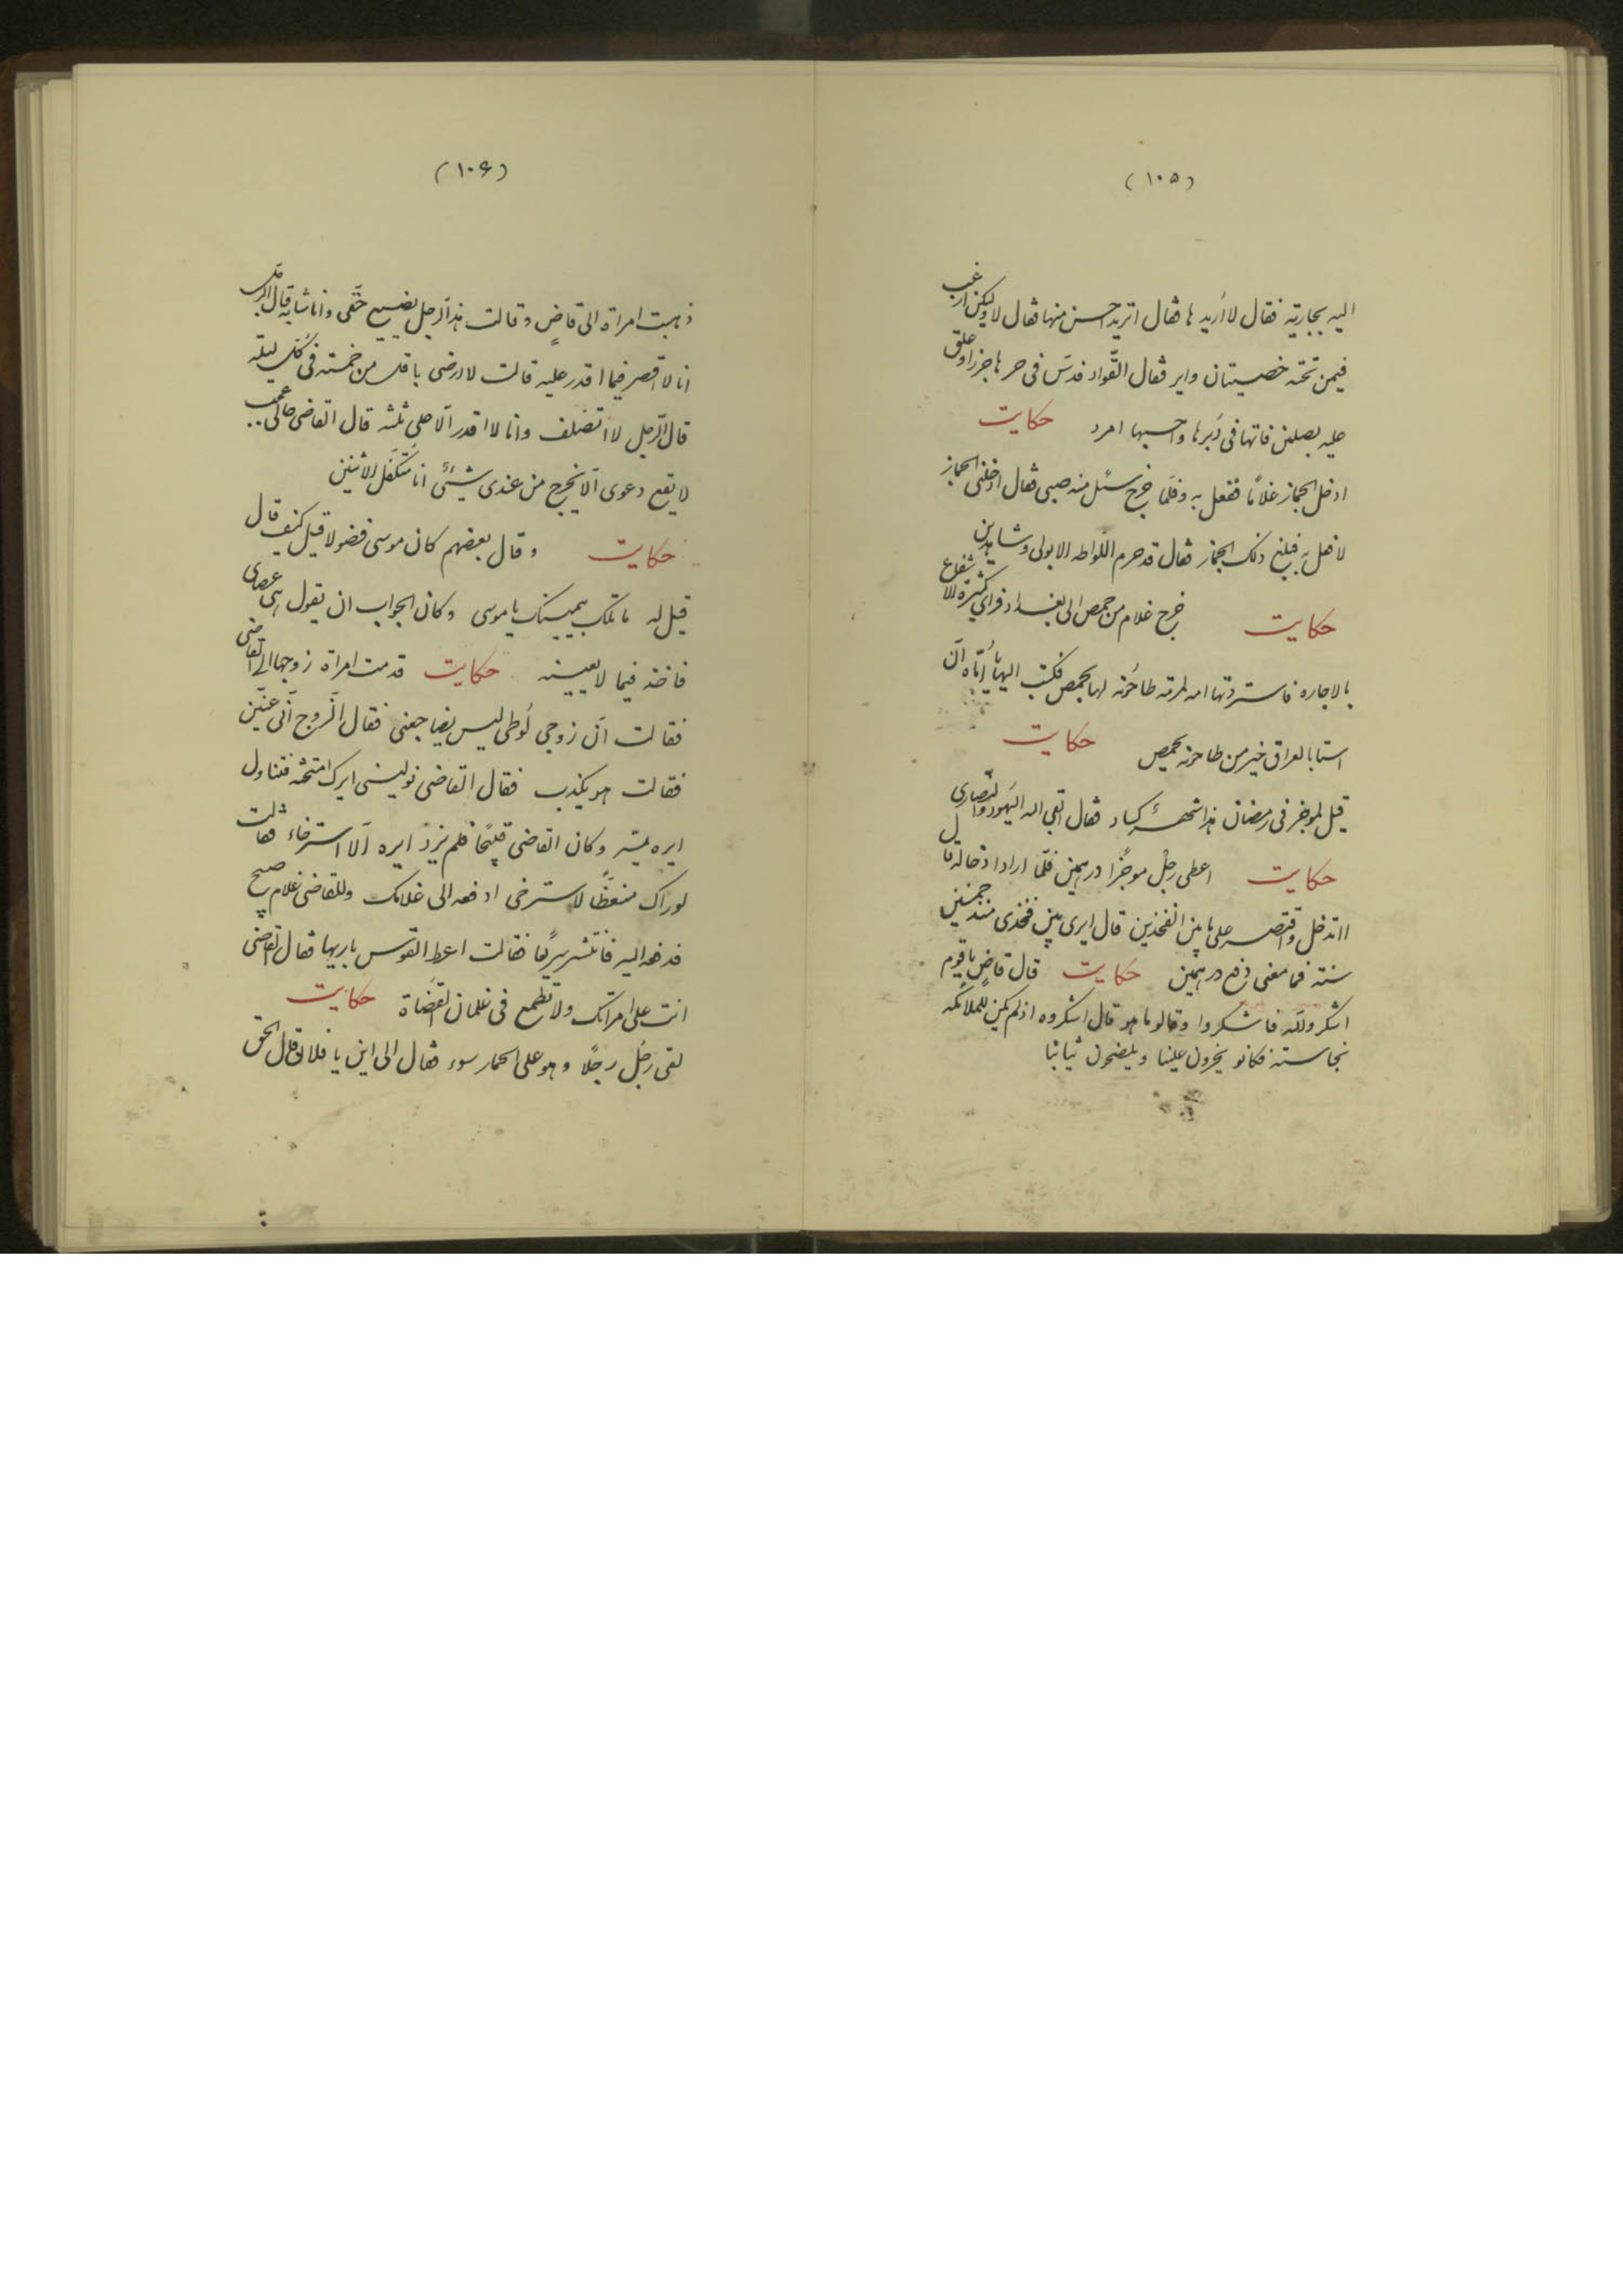 (١٠٥)
اليه بجارية فقال لا اريدها فقال اتريد احسن منها فقال لا ولكن ارغب
فيمن تحته خصيتان واير فقال القواد فدس فى حرها جزرا وعلق
عليه بصلتين فاتها فى دبرها واحسبها امرد حكايت
ادخل الجماز غلامًا ففعل به وفلما خرج سئل منه صبى فقال ادخلنى الجماز
لافعل به فبلغ ذلك الجماز فقال قد حرم اللواطه الا بولى وشاهدين
حكايت خرج غلام من حمص الى بغداد فراى كثيرة الانتفاع
بالاجاره فاستردتها امه لمرمة طاحونه لها بحمص فكتب اليها يا اماه ان
استا بالعراق خير من طاحونه بحمص حكايت
قيل لموجر فى رمضان هذا شهر كساد فقال ابقى الله اليهود والنصارى
حكايت اعطى رجل موجرًا درهمين فلما اراد ادخاله قال
لا تدخل واقتصر على ما بين الفخذين قال ايرى بين فخذى منذ خمسين
سنة فما معنى دفع درهمين حكايت قال قاض يا قوم
اشكروالله فاشكروا وقالو ما هو قال اشكروه اذ لم يكن للملائكه
نجاسته فكانو يخرون علينا ويلضخون ثيابنا
(١٠۶)
ذهبت امراة الى قاضٍ وقالت هذا الرجل يضيع حقى وانا شابه قال الرجل
انا لا اقصر فيما اقدر عليه قالت لا ارضى باقل من خمسته فى كل ليلة
قال الرجل لا اتصلف وانا لا اقدر الا على ثلثه قال القاضى حالى عجب
لا يقع دعوى الا يخرج من عندى شيئ انا متكفل الاثنين
حكايت وقال بعضهم كان موسى فضولا قيل كيف قال
قيل له ما تلك بيمينك يا موسى وكان الجواب ان يقول هى عصاى
فاخذ فيما لا يعينه حكايت قدمت امراة زوجها الى القاضى
فقالت ان زوجى لوطى ليس يضاجعنى فقال الزوج انى عنين
فقالت هو يكذب فقال القاضى نولينى ايرك امتحنه فتناول
ايره يمتد وكان القاضى قبيحًا فلم يزد ايره الا استرخاء فقالت
لوراك منعظًا لاسترخى ادفعه الى غلامك وللقاضى غلام صبيح
فدفعه اليه فانتشر سريعًا فقالت اعط القوس باريها فقال القاضى
انت على امراتك ولا تطمع فى غلمان القضاة حكايت
لقى رجل رجلًا وهو على الحمار سوء فقال الى اين يا فلان قال الحق